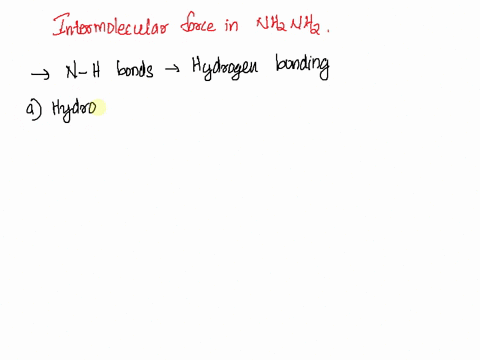 Intermolecular force in NH2 NH2.
→ N-H bonds → Hydrogen bonding
a) Hydro